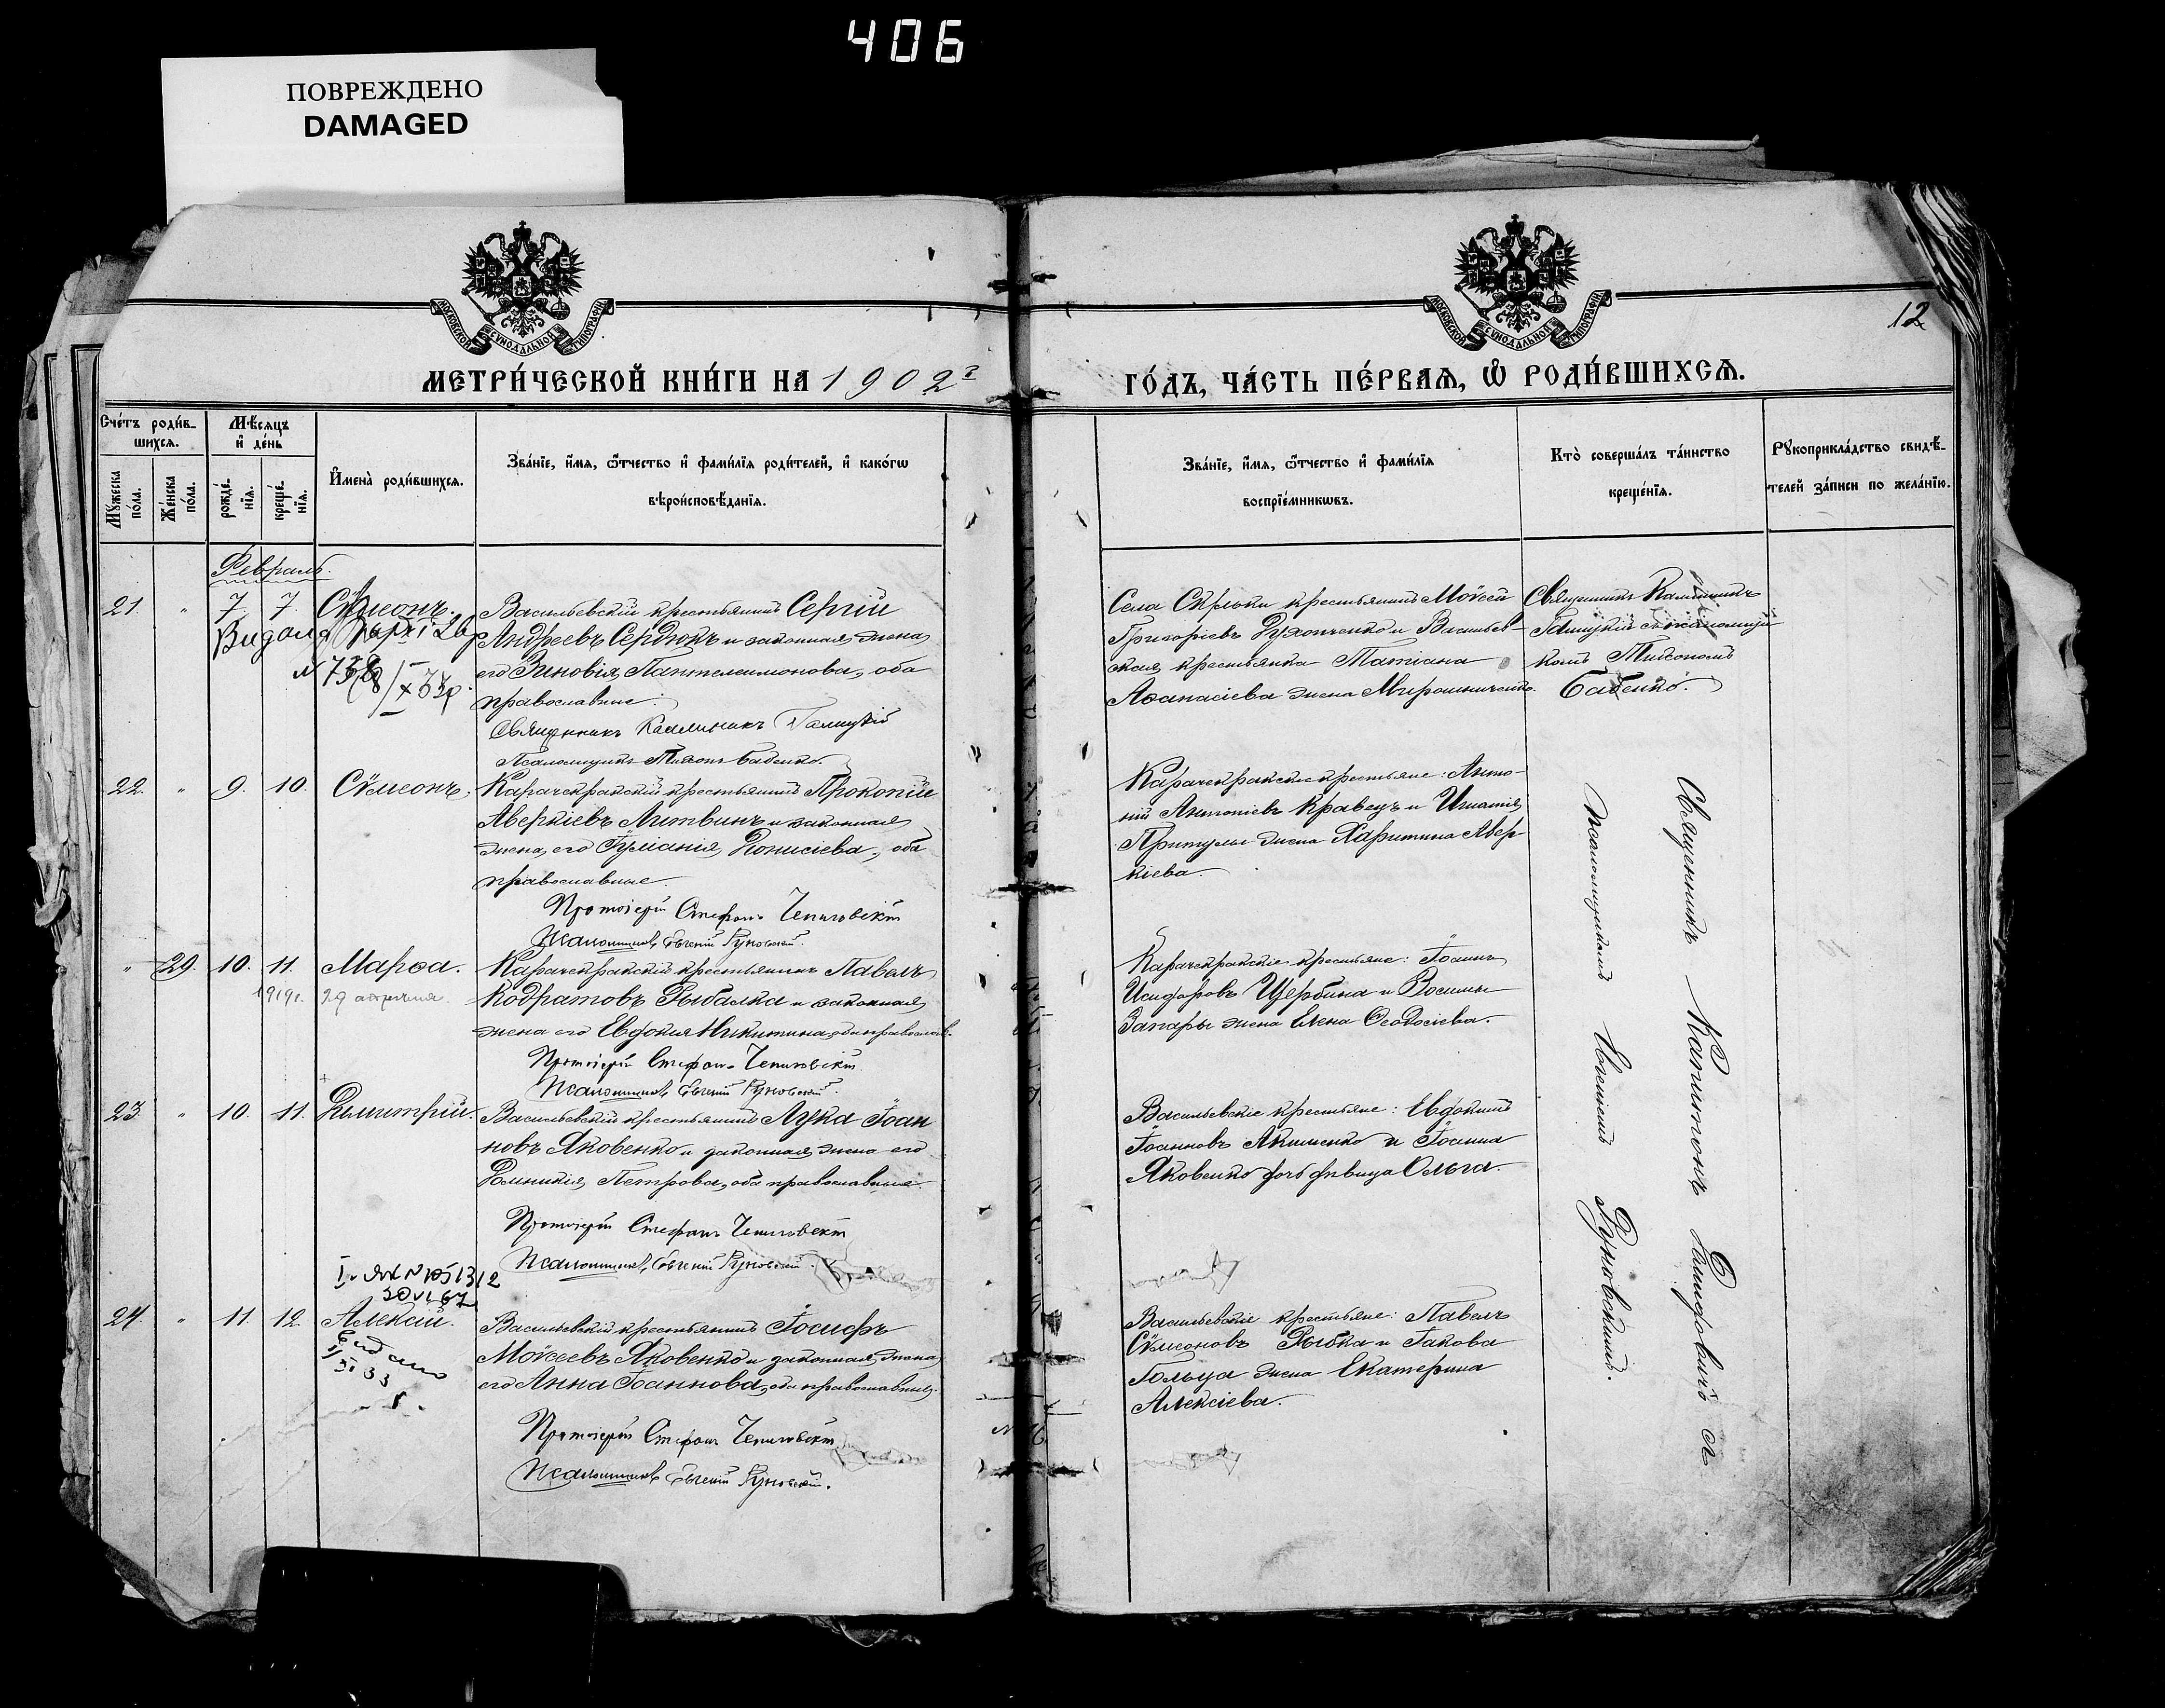 406
ПОВРЕЖДЕНО
DAMAGED
МОСКОВСКОЙ СѴНОДАЛЬНОЙ ТИПОГРАФІИ
МОСКОВСКОЙ СѴНОДАЛЬНОЙ ТИПОГРАФІИ
12
МЕТРИ́ЧЕСКОЙ КНИ́ГИ НА 1902й
ГО́ДЪ, ЧА́СТЬ ПЕ́РВАѦ, Ѽ РОДИ́ВШИХСѦ.
Сче́тъ роди́в-
шихсѧ.
Мѣ́сѧцъ
и҆ де́нь
Мꙋ́жеска
по́ла.
Же́нска
по́ла.
рожде́-
нїѧ.
креще́-
нїѧ.
И҆мена̀ роди́вшихсѧ.
Зва́нїе, и҆́мѧ, ѻ҆́тчество и҆ фами́лїѧ роди́телей, и҆ како́гѡ
вѣроисповѣ́данїѧ.
Зва́нїе, и҆́мѧ, ѻ҆́тчество и҆ фами́лїѧ
воспрїе́мникѡвъ.
Кто̀ соверша́лъ та́инство
креще́нїѧ.
Рꙋкоприкла́дство свидѣ́-
телей за́писи по жела́нїю.
Февраль.
21. " 7. 7. Сѵмеонъ.
Васильевскій крестьянинъ Сергій
Андреевъ Сердюкъ и законная жена
его Зиновія Пантелеимонова, оба
православные.
Священникъ Каллиникъ Галицкій
Псаломщикъ Тихонъ Бабенко.
Села Скельки крестьянинъ Мойсей
Григоріевъ Духонченко и Васильев-
ская крестьянка Татіана
Аѳанасіева жена Мирошниченко.
Священникъ Каллиникъ
Галицкій съ псаломщи-
комъ Тихономъ
Бабенко.
22. " 9. 10. Сѵмеонъ.
Карачекракскій крестьянинъ Прокопій
Аверкіевъ Литвинъ и законная
жена его Іуліанія Діонисіева, оба
православные.
Протоіерей Стефанъ
Псаломщикъ Евгеній Руновскій.
Карачекракскіе крестьяне: Анто-
ній Антоніевъ Кравецъ и Игнатія
Притулы жена Харитина Авер-
кіева.
" 29. 10. 11. Марѳа.
1919г. 29
Карачекракскій крестьянинъ Павелъ
Кодратовъ Рыбалка и законная
жена его Евдокія Никитина, оба православ.
Протоіерей Стефанъ
Псаломщикъ Евгеній Руновскій.
Карачекракскіе крестьяне: Іоаннъ
Исидоровъ Щербина и Василія
Запары жена Елена Ѳеодосіева.
23. " 10. 11. Димитрій.
Васильевскій крестьянинъ Лука Іоан
новъ Яковенко и законная жена его
Домникія Петрова, оба православные.
Протоіерей Стефанъ
Псаломщикъ Евгеній Руновскій.
Васильевскіе крестьяне: Евдокимъ
Іоанновъ Акименко и Іоанна
Яковенко дочь дѣвица Ольга.
24. " 11. 12. Алексій.
Васильевскій крестьянинъ Іосифъ
Мойсеевъ Яковенко и законная жена
его Анна Іоаннова, оба православные.
Протоіерей Стефанъ
Псаломщикъ Евгеній Руновскій.
Васильевскіе крестьяне: Павелъ
Сѵмеоновъ Рыбка и Іакова
Гольца жена Екатерина
Алексіева.
Псаломщикомъ Евгеніемъ Руновскимъ.